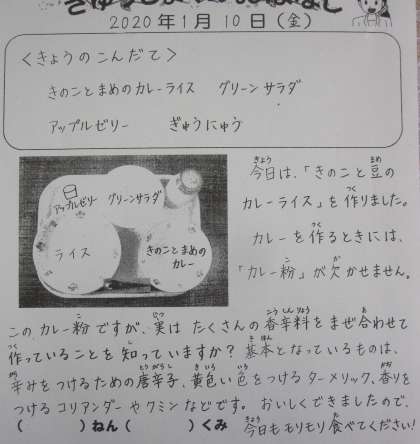 2020年1月10日（金）
＜きょうのこんだて＞
きのことまめのカレーライス　グリーンサラダ
アップルゼリー　ぎゅうにゅう
アップルゼリー　グリーンサラダ
ライス　きのことまめの
カレー
今日は、「きのこと豆の
カレーライス」を作りました。
カレーを作るときには、
「カレー粉」が欠かせません。
このカレー粉ですが、実はたくさんの香辛料をまぜ合わせて
作っていることを知っていますか？基本となっているものは、
辛みをつけるための唐辛子、黄色い色をつけるターメリック、香りを
つけるコリアンダーやクミンなどです。おいしくできましたので、
（　　　）ねん（　　　）くみ　今日もモリモリ食べてください！